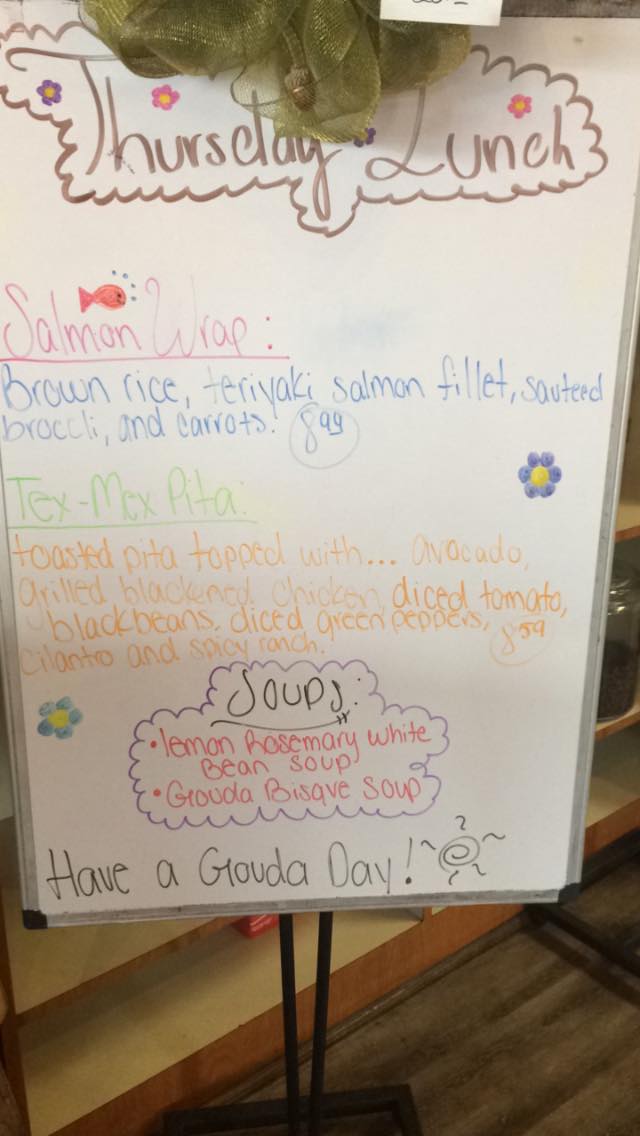 Thursday Lunch
Salmon Wrap:
Brown rice, teriyaki salmon fillet, sauteed
broccli, and carrots. 8.99
Tex-Mex Pita:
toasted pita topped with... avocado,
grilled blackened chicken, diced tomato,
blackbeans, diced green peppers,
cilantro and spicy ranch. 8.59
Soups:
• lemon Rosemary white
Bean soup
• Gouda Bisque soup
Have a Gouda Day!